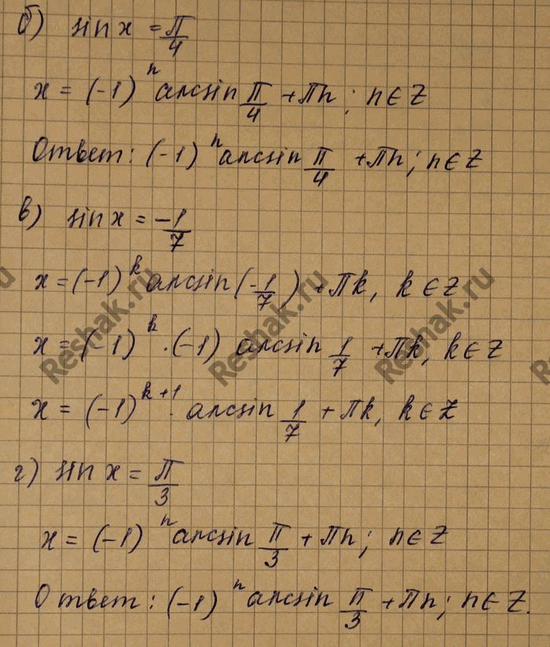 б) sin x = π/4
x = (-1)ⁿ arcsin π/4 + πn; n∈Z
Ответ: (-1)ⁿ arcsin π/4 + πn; n∈Z
в) sin x = -1/7
x = (-1)ᵏ arcsin(-1/7) + πk, k∈Z
x = (-1)ᵏ · (-1) arcsin 1/7 + πk, k∈Z
x = (-1)ᵏ⁺¹ · arcsin 1/7 + πk, k∈Z
г) sin x = π/3
x = (-1)ⁿ arcsin π/3 + πn; n∈Z
Ответ: (-1)ⁿ arcsin π/3 + πn; n∈Z.
Reshak.ru
Reshak.ru
Reshak.ru